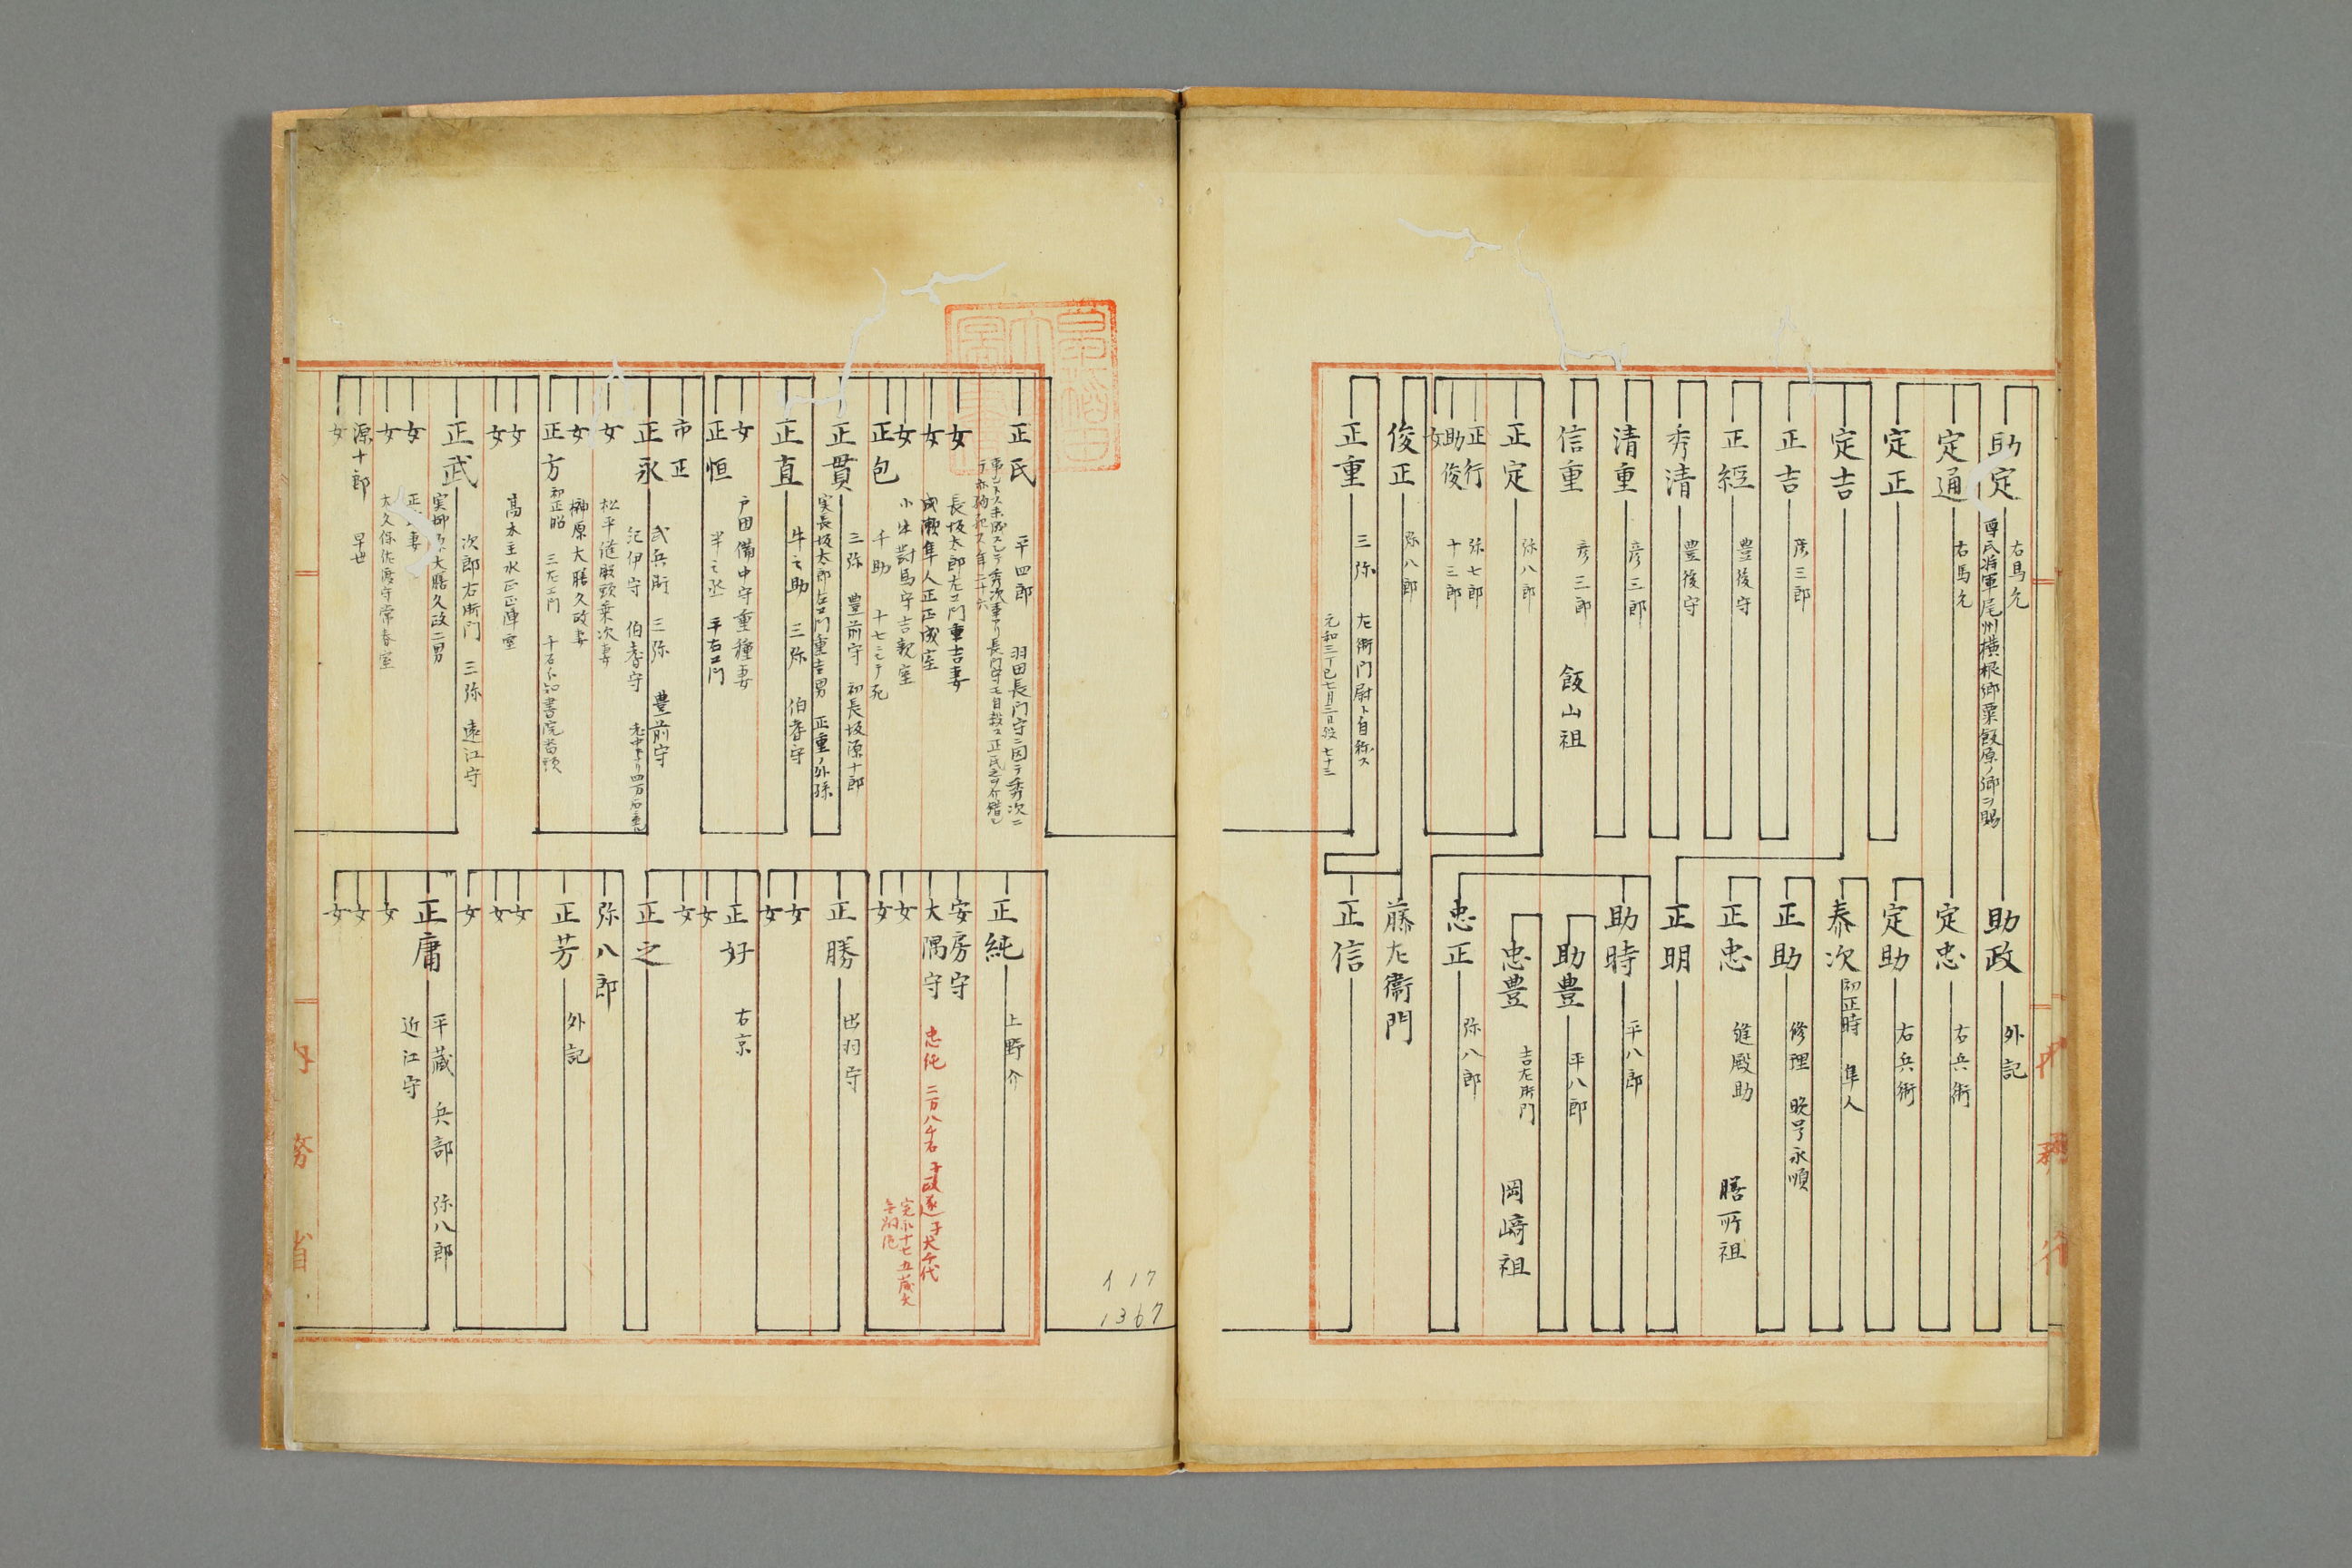 助定
右馬允
尊氏将軍尾州横根郷粟飯原ノ郷ヲ賜
定通
右馬允
定正
定吉
正吉
彦三郎
正経
豊後守
秀清
豊後守
清重
彦三郎
信重
彦三郎
飯山祖
正定
弥八郎
正行
弥七郎
助俊
十三郎
女
俊正
弥八郎
正重
三弥 左衛門尉ト自称ス
元和三丁巳七月三日歿 七十三
助政
外記
定忠
右兵衛
定助
右兵衛
泰次
初正時 隼人
正助
修理 晩号永順
正忠
縫殿助
膳所祖
正明
助時
平八郎
助豊
平八郎
忠豊
吉左衛門
岡崎祖
忠正
弥八郎
藤左衛門
正信
正氏
平四郎 羽田長門守ニ因テ秀次ニ
女
長坂太郎左エ門重吉妻
女
成瀬隼人正正成室
女
小出対馬守吉親室
正包
千助 十七ニシテ死
正貫
三弥 豊前守 初長坂源十郎
実長坂太郎左エ門重吉男 正重ノ外孫
正直
牛之助 三弥 伯耆守
女
戸田備中守重種妻
正恒
半之丞 平右エ門
市正
正永
武兵衛 三弥 豊前守
紀伊守 伯耆守
女
松平縫殿頭乗次妻
女
榊原大膳久政妻
正方
初正昭 三左エ門
女
女
高木主水正正陳室
正武
次郎右衛門 三弥 遠江守
実榊原大膳久政二男
女
女
大久保佐渡守常春室
源十郎
早世
女
正純
上野介
安房守
大隅守
忠純 二万八千石
女
女
正勝
出羽守
女
女
正好
右京
女
女
正之
弥八郎
正芳
外記
女
女
女
正庸
平蔵 兵部 弥八郎
近江守
女
女
女
117
1367
内務省